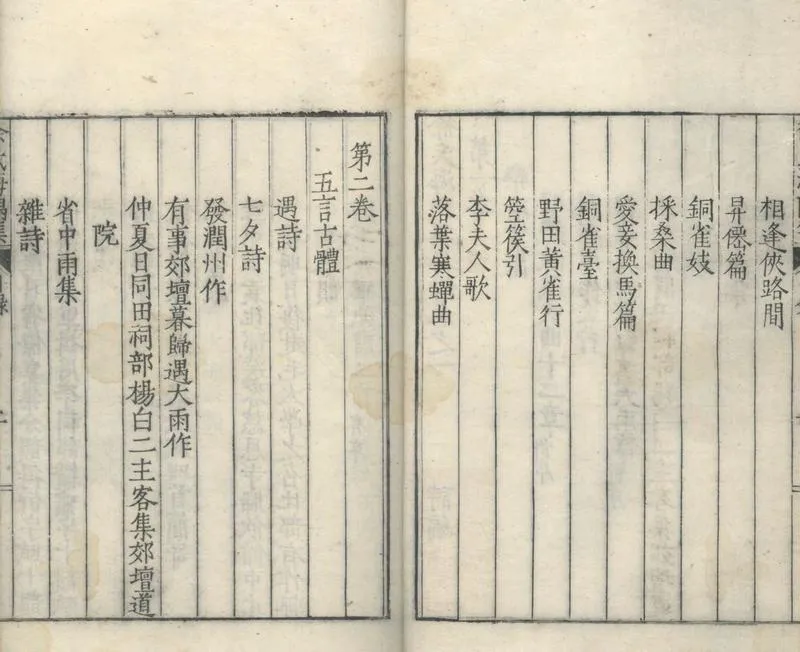 相逢俠路間
昇僊篇
銅雀妓
採桑曲
愛妾換馬篇
銅雀臺
野田黃雀行
箜篌引
李夫人歌
落葉寒蟬曲
第二卷
五言古體
遇詩
七夕詩
發潤州作
有事郊壇暮歸遇大雨作
仲夏日同田祠部楊白二主客集郊壇道
院
省中雨集
雜詩